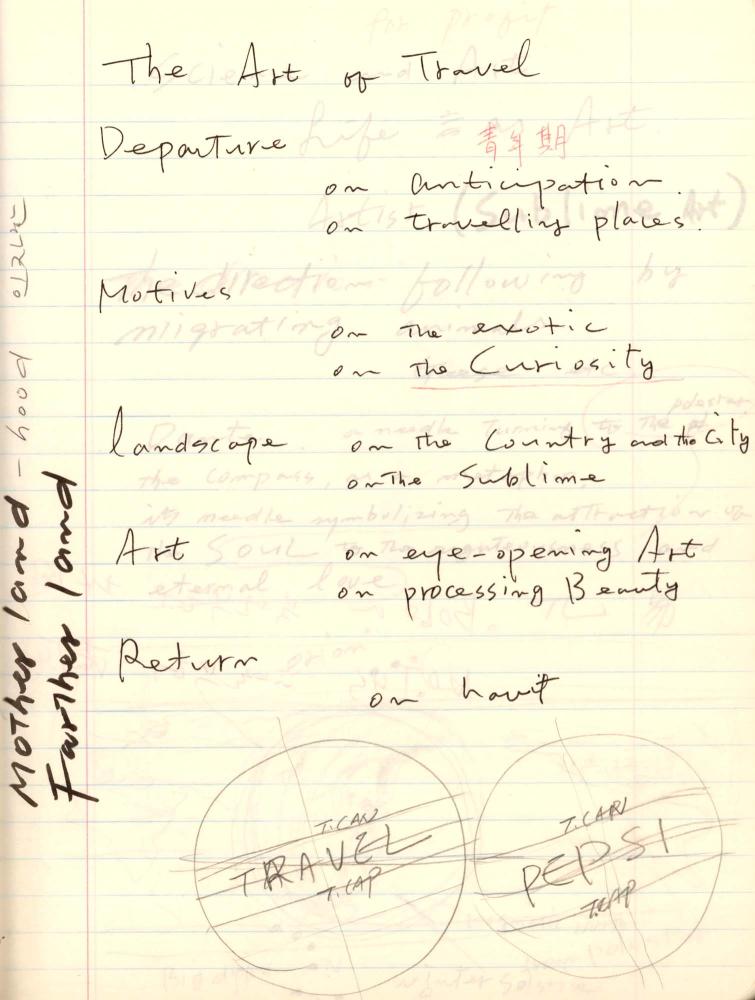 The Art of Travel
Departure
青年期
on anticipation.
on travelling places.
Motives
on The exotic
on The Curiosity
landscape on the Country and the City
on The Sublime
Art on eye-opening Art
on processing Beauty
Return
on havit
Mother land - hood
Farther land
T.CAN
TRAVEL
T.CAP
T.CAN
PEPSI
T.CAP